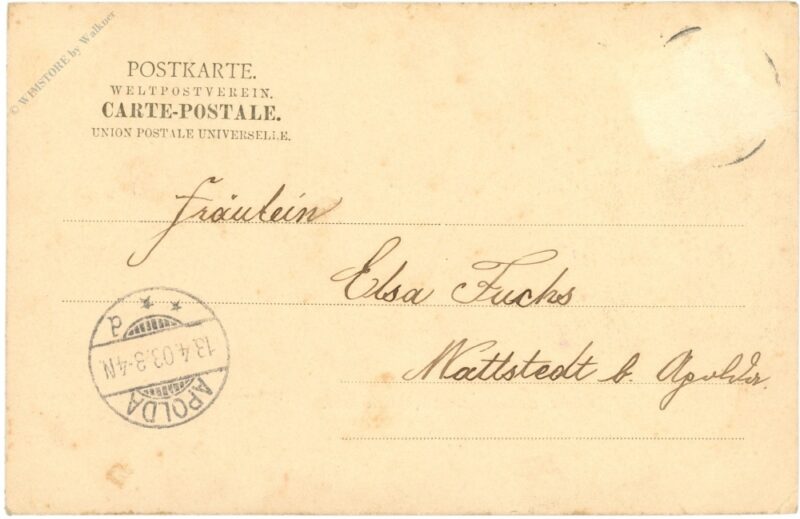 © WIMSTORE by Walkner
POSTKARTE.
WELTPOSTVEREIN.
CARTE-POSTALE.
UNION POSTALE UNIVERSELLE.
Fräulein
Elsa Fuchs
Wattstedt b. Apolda.
d
13.4.03.3-4N.
APOLDA